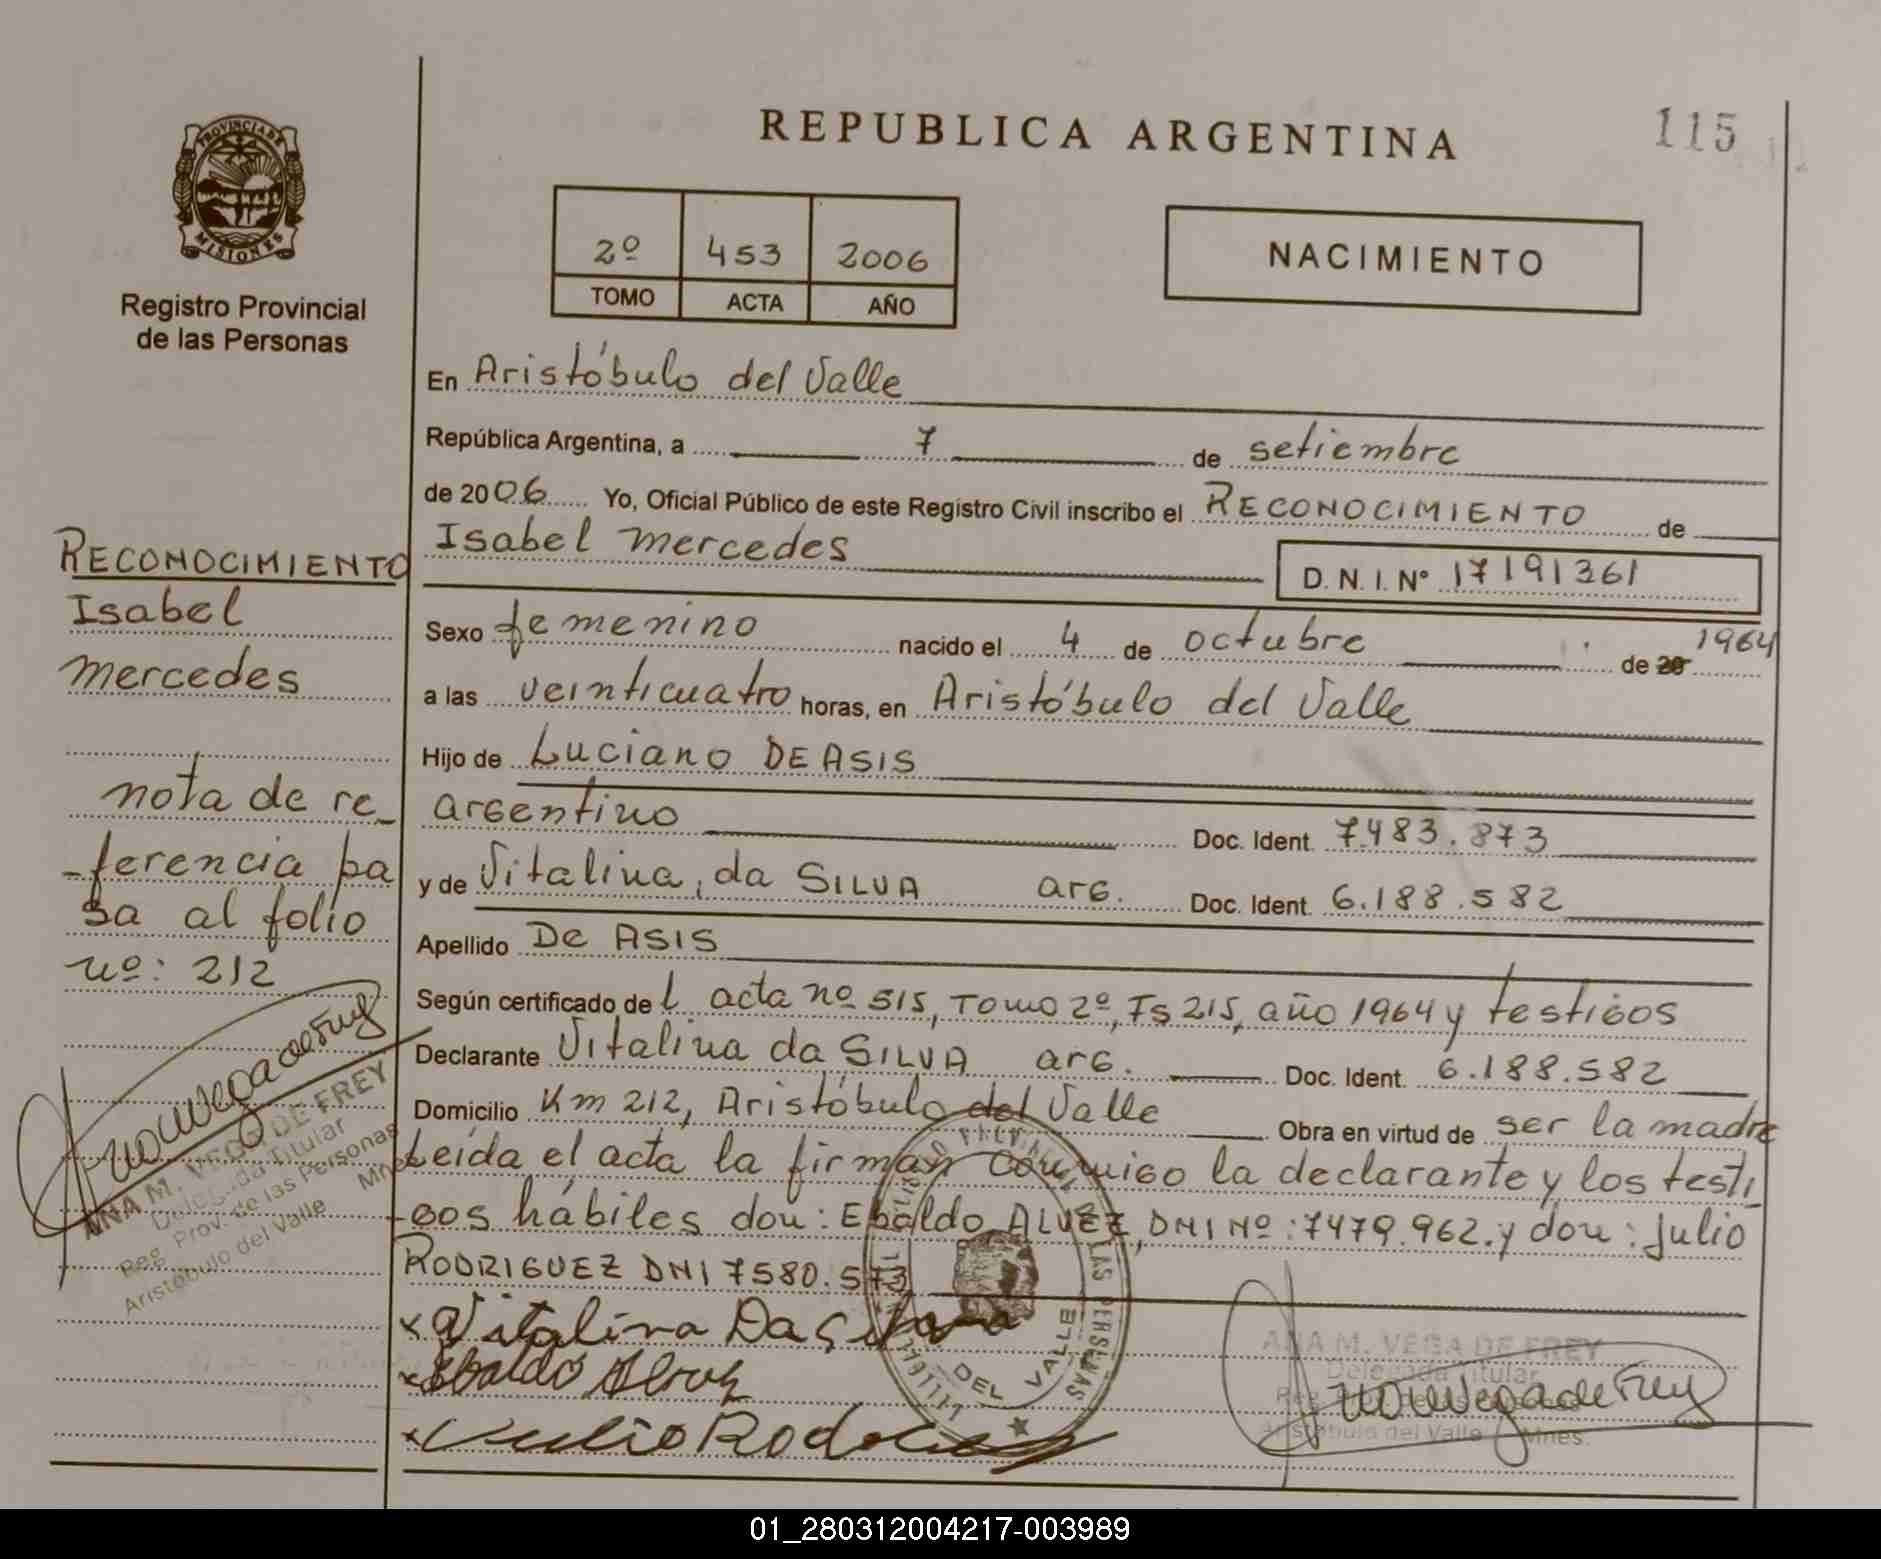 REPUBLICA ARGENTINA
115
PROVINCIA DE
MISIONES
Registro Provincial
de las Personas
2º 453 2006
TOMO ACTA AÑO
NACIMIENTO
En Aristóbulo del Valle
República Argentina, a 7 de setiembre
de 2006 Yo, Oficial Público de este Registro Civil inscribo el RECONOCIMIENTO de
Isabel Mercedes
D. N. I. Nº 17191361
Sexo femenino nacido el 4 de octubre de 20 1964
a las veinticuatro horas, en Aristóbulo del Valle
Hijo de Luciano DE ASIS
argentino Doc. Ident. 7.483.873
y de Vitalina, da SILVA arg. Doc. Ident. 6.188.582
Apellido De ASIS
Según certificado de l acta nº 515, Tomo 2º, Fs 215, año 1964 y testigos
Declarante Vitalina da SILVA arg. Doc. Ident. 6.188.582
Domicilio Km 212, Aristóbulo del Valle Obra en virtud de ser la madre
Leída el acta la firman conmigo la declarante y los testi
-gos hábiles don: Ebaldo ALVEZ, DNI Nº: 7479.962. y don: Julio
RODRIGUEZ DNI 7580.573
x Vitalina Da Silva
x Ebaldo Alvez
x Julio Rodriguez
DEL VALLE
ANA M. VEGA DE FREY
Delegada Titular
Aristóbulo del Valle Mnes.
RECONOCIMIENTO
Isabel
Mercedes
nota de re-
-ferencia pa
sa al folio
nº: 212
ANA M. VEGA DE FREY
Delegada Titular
Reg. Prov. de las Personas
Aristóbulo del Valle Mnes.
01_280312004217-003989